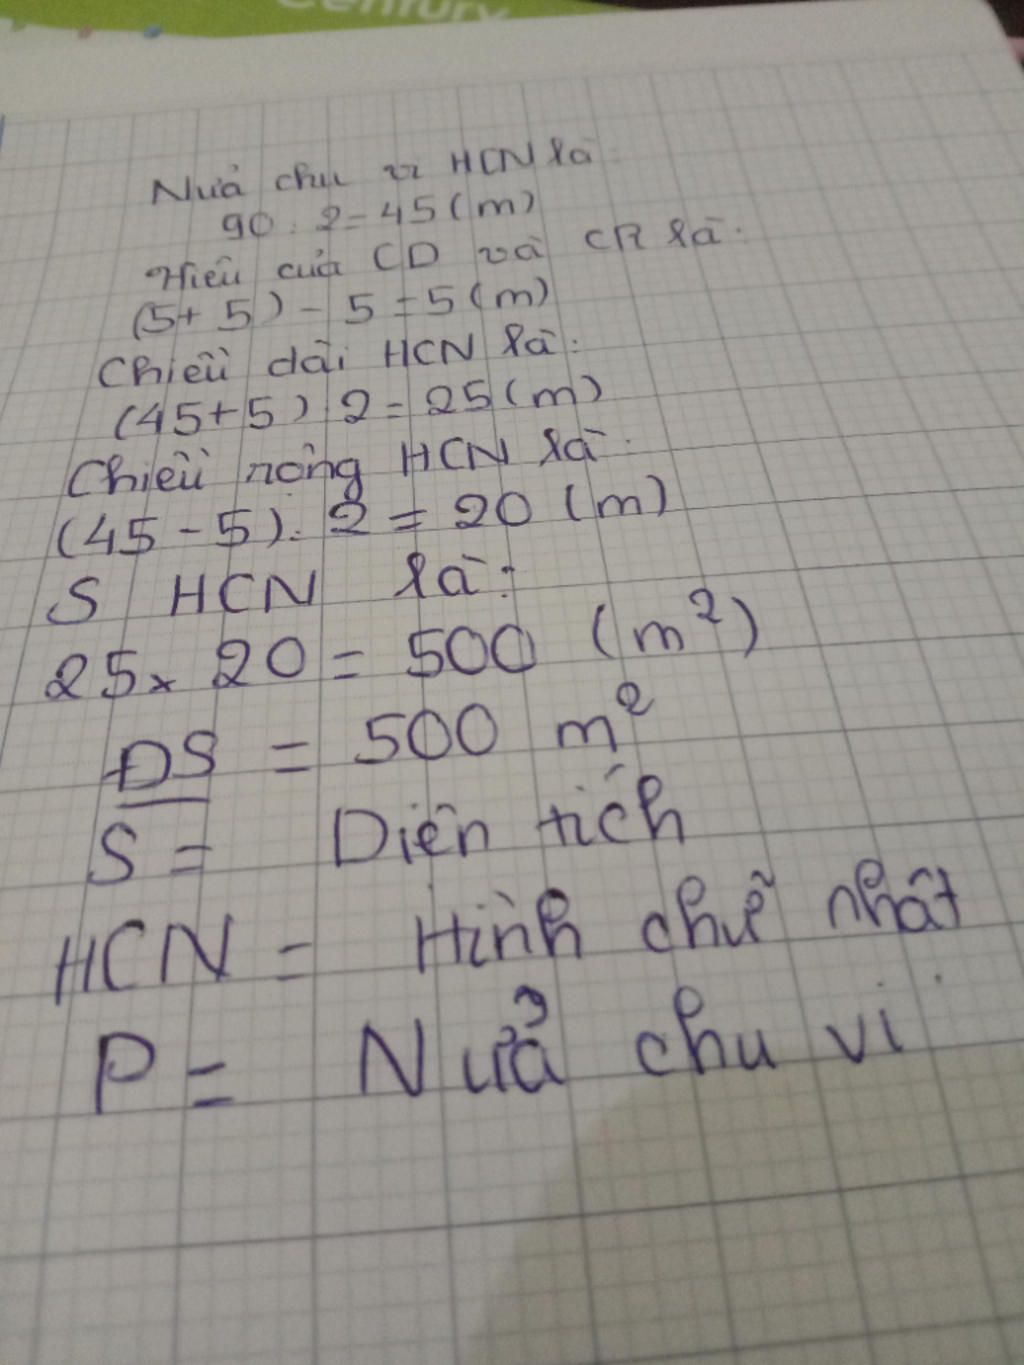 Century
Nưả chu vi HCN là
90 : 2 = 45 (m)
Hiêu cuả CD và CR là:
(5+ 5) - 5 = 5 (m)
Chiều dài HCN là:
(45+5) : 2 = 25 (m)
Chiều rông HCN là:
(45 - 5) : 2 = 20 (m)
S HCN là:
25 x 20 = 500 (m²)
ĐS = 500 m²
S = Diên tích
HCN = Hình chữ nhât
P = Nửả chu vi